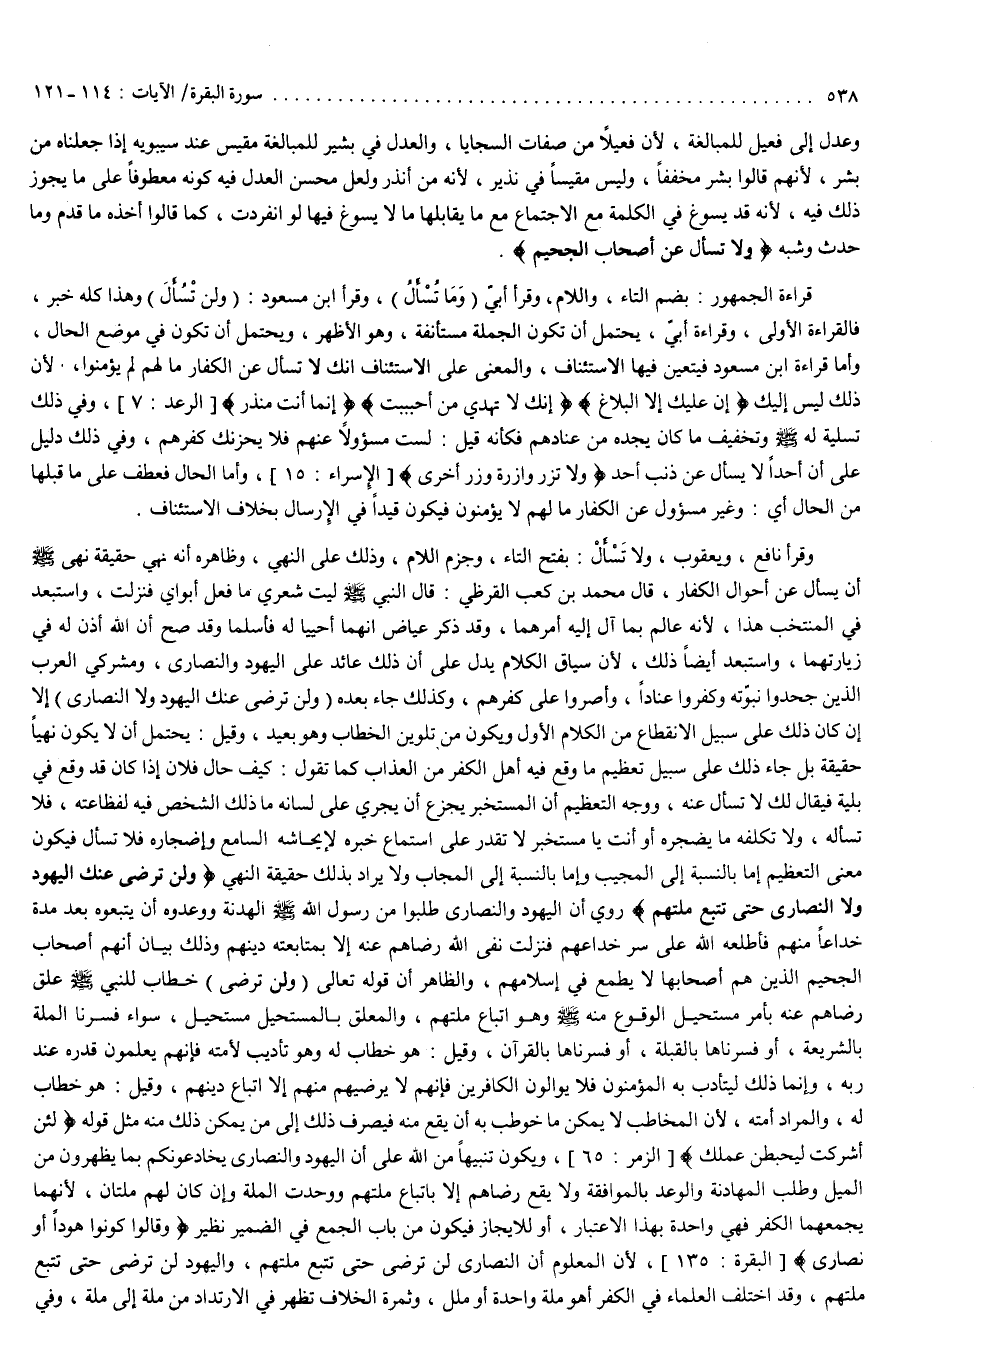 ٥٣٨ ........................................................ سورة البقرة/ الآيات : ١١٤ -١٢١
وعدل إلى فعيل للمبالغة ، لأن فعيلاً من صفات السجايا ، والعدل في بشير للمبالغة مقيس عند سيبويه إذا جعلناه من
بشر ، لأنهم قالوا بشر مخففاً ، وليس مقيساً في نذير ، لأنه من أنذر ولعل محسن العدل فيه كونه معطوفاً على ما يجوز
ذلك فيه ، لأنه قد يسوغ في الكلمة مع الاجتماع مع ما يقابلها ما لا يسوغ فيها لو انفردت ، كما قالوا أخذه ما قدم وما
حدث وشبه ﴿ ولا تسأل عن أصحاب الجحيم ﴾ .
قراءة الجمهور : بضم التاء ، واللام، وقرأ أبيّ ( وَمَا تُسْأَلُ ) ، وقرأ ابن مسعود : ( ولن تُسْأَلَ ) وهذا كله خبر ،
فالقراءة الأولى ، وقراءة أبيّ ، يحتمل أن تكون الجملة مستأنفة ، وهو الأظهر ، ويحتمل أن تكون في موضع الحال ،
وأما قراءة ابن مسعود فيتعين فيها الاستئناف ، والمعنى على الاستئناف انك لا تسأل عن الكفار ما لهم لم يؤمنوا، لأن
ذلك ليس إليك ﴿ إن عليك إلا البلاغ ﴾ ﴿ إنك لا تهدي من أحببت ﴾ ﴿ إنما أنت منذر ﴾ [ الرعد : ٧ ] ، وفي ذلك
تسلية له ﷺ وتخفيف ما كان يجده من عنادهم فكأنه قيل : لست مسؤولاً عنهم فلا يحزنك كفرهم ، وفي ذلك دليل
على أن أحداً لا يسأل عن ذنب أحد ﴿ ولا تزر وازرة وزر أخرى ﴾ [ الإسراء : ١٥ ] ، وأما الحال فعطف على ما قبلها
من الحال أي : وغير مسؤول عن الكفار ما لهم لا يؤمنون فيكون قيداً في الإرسال بخلاف الاستئناف .
وقرأ نافع ، ويعقوب ، ولا تَسْأَلْ : بفتح التاء ، وجزم اللام ، وذلك على النهي ، وظاهره أنه نهي حقيقة نهى ﷺ
أن يسأل عن أحوال الكفار ، قال محمد بن كعب القرظي : قال النبي ﷺ ليت شعري ما فعل أبواي فنزلت ، واستبعد
في المنتخب هذا ، لأنه عالم بما آل إليه أمرهما ، وقد ذكر عياض انهما أحييا له فأسلما وقد صح أن الله أذن له في
زيارتهما ، واستبعد أيضاً ذلك ، لأن سياق الكلام يدل على أن ذلك عائد على اليهود والنصارى ، ومشركي العرب
الذين جحدوا نبوّته وكفروا عناداً ، وأصروا على كفرهم ، وكذلك جاء بعده ( ولن ترضى عنك اليهود ولا النصارى ) إلا
إن كان ذلك على سبيل الانقطاع من الكلام الأول ويكون من تلوين الخطاب وهو بعيد ، وقيل : يحتمل أن لا يكون نهياً
حقيقة بل جاء ذلك على سبيل تعظيم ما وقع فيه أهل الكفر من العذاب كما تقول : كيف حال فلان إذا كان قد وقع في
بلية فيقال لك لا تسأل عنه ، ووجه التعظيم أن المستخبر يجزع أن يجري على لسانه ما ذلك الشخص فيه لفظاعته ، فلا
تسأله ، ولا تكلفه ما يضجره أو أنت يا مستخبر لا تقدر على استماع خبره لإيحاشه السامع وإضجاره فلا تسأل فيكون
معنى التعظيم إما بالنسبة إلى المجيب وإما بالنسبة إلى المجاب ولا يراد بذلك حقيقة النهي ﴿ ولن ترضى عنك اليهود
ولا النصارى حتى تتبع ملتهم ﴾ روي أن اليهود والنصارى طلبوا من رسول الله ﷺ الهدنة ووعدوه أن يتبعوه بعد مدة
خداعاً منهم فأطلعه الله على سر خداعهم فنزلت نفى الله رضاهم عنه إلا بمتابعته دينهم وذلك بيان أنهم أصحاب
الجحيم الذين هم أصحابها لا يطمع في إسلامهم ، والظاهر أن قوله تعالى ( ولن ترضى ) خطاب للنبي ﷺ علق
رضاهم عنه بأمر مستحيل الوقوع منه ﷺ وهو اتباع ملتهم ، والمعلق بالمستحيل مستحيل ، سواء فسرنا الملة
بالشريعة ، أو فسرناها بالقبلة ، أو فسرناها بالقرآن ، وقيل : هو خطاب له وهو تأديب لأمته فإنهم يعلمون قدره عند
ربه ، وإنما ذلك ليتأدب به المؤمنون فلا يوالون الكافرين فإنهم لا يرضيهم منهم إلا اتباع دينهم ، وقيل : هو خطاب
له ، والمراد أمته ، لأن المخاطب لا يمكن ما خوطب به أن يقع منه فيصرف ذلك إلى من يمكن ذلك منه مثل قوله ﴿ لئن
أشركت ليحبطن عملك ﴾ [ الزمر : ٦٥ ] ، ويكون تنبيهاً من الله على أن اليهود والنصارى يخادعونكم بما يظهرون من
الميل وطلب المهادنة والوعد بالموافقة ولا يقع رضاهم إلا باتباع ملتهم ووحدت الملة وإن كان لهم ملتان ، لأنهما
يجمعهما الكفر فهي واحدة بهذا الاعتبار ، أو للايجاز فيكون من باب الجمع في الضمير نظير ﴿ وقالوا كونوا هوداً أو
نصارى ﴾ [ البقرة : ١٣٥ ] ، لأن المعلوم أن النصارى لن ترضى حتى تتبع ملتهم ، واليهود لن ترضى حتى تتبع
ملتهم ، وقد اختلف العلماء في الكفر أهو ملة واحدة أو ملل ، وثمرة الخلاف تظهر في الارتداد من ملة إلى ملة ، وفي